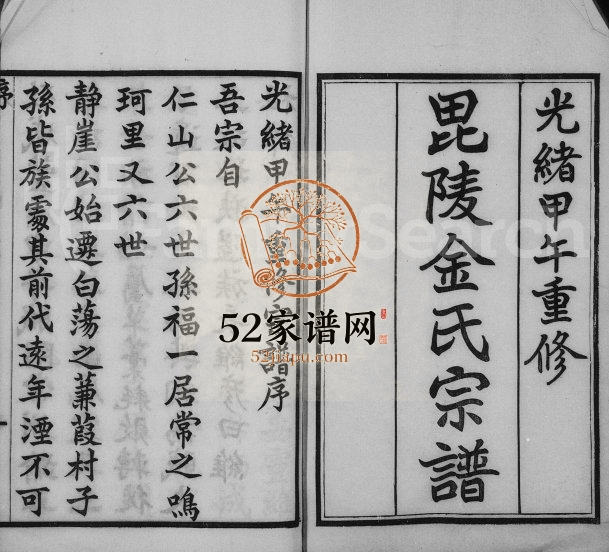 光緒甲午重修
毘陵金氏宗譜
光緒甲午重修宗譜序
吾宗自
仁山公六世孫福一居常之鳴
珂里又六世
静崖公始遷白蕩之蒹葭村子
孫皆族處其前代遠年湮不可
序
一
52家谱网
52jiapu.com
Search